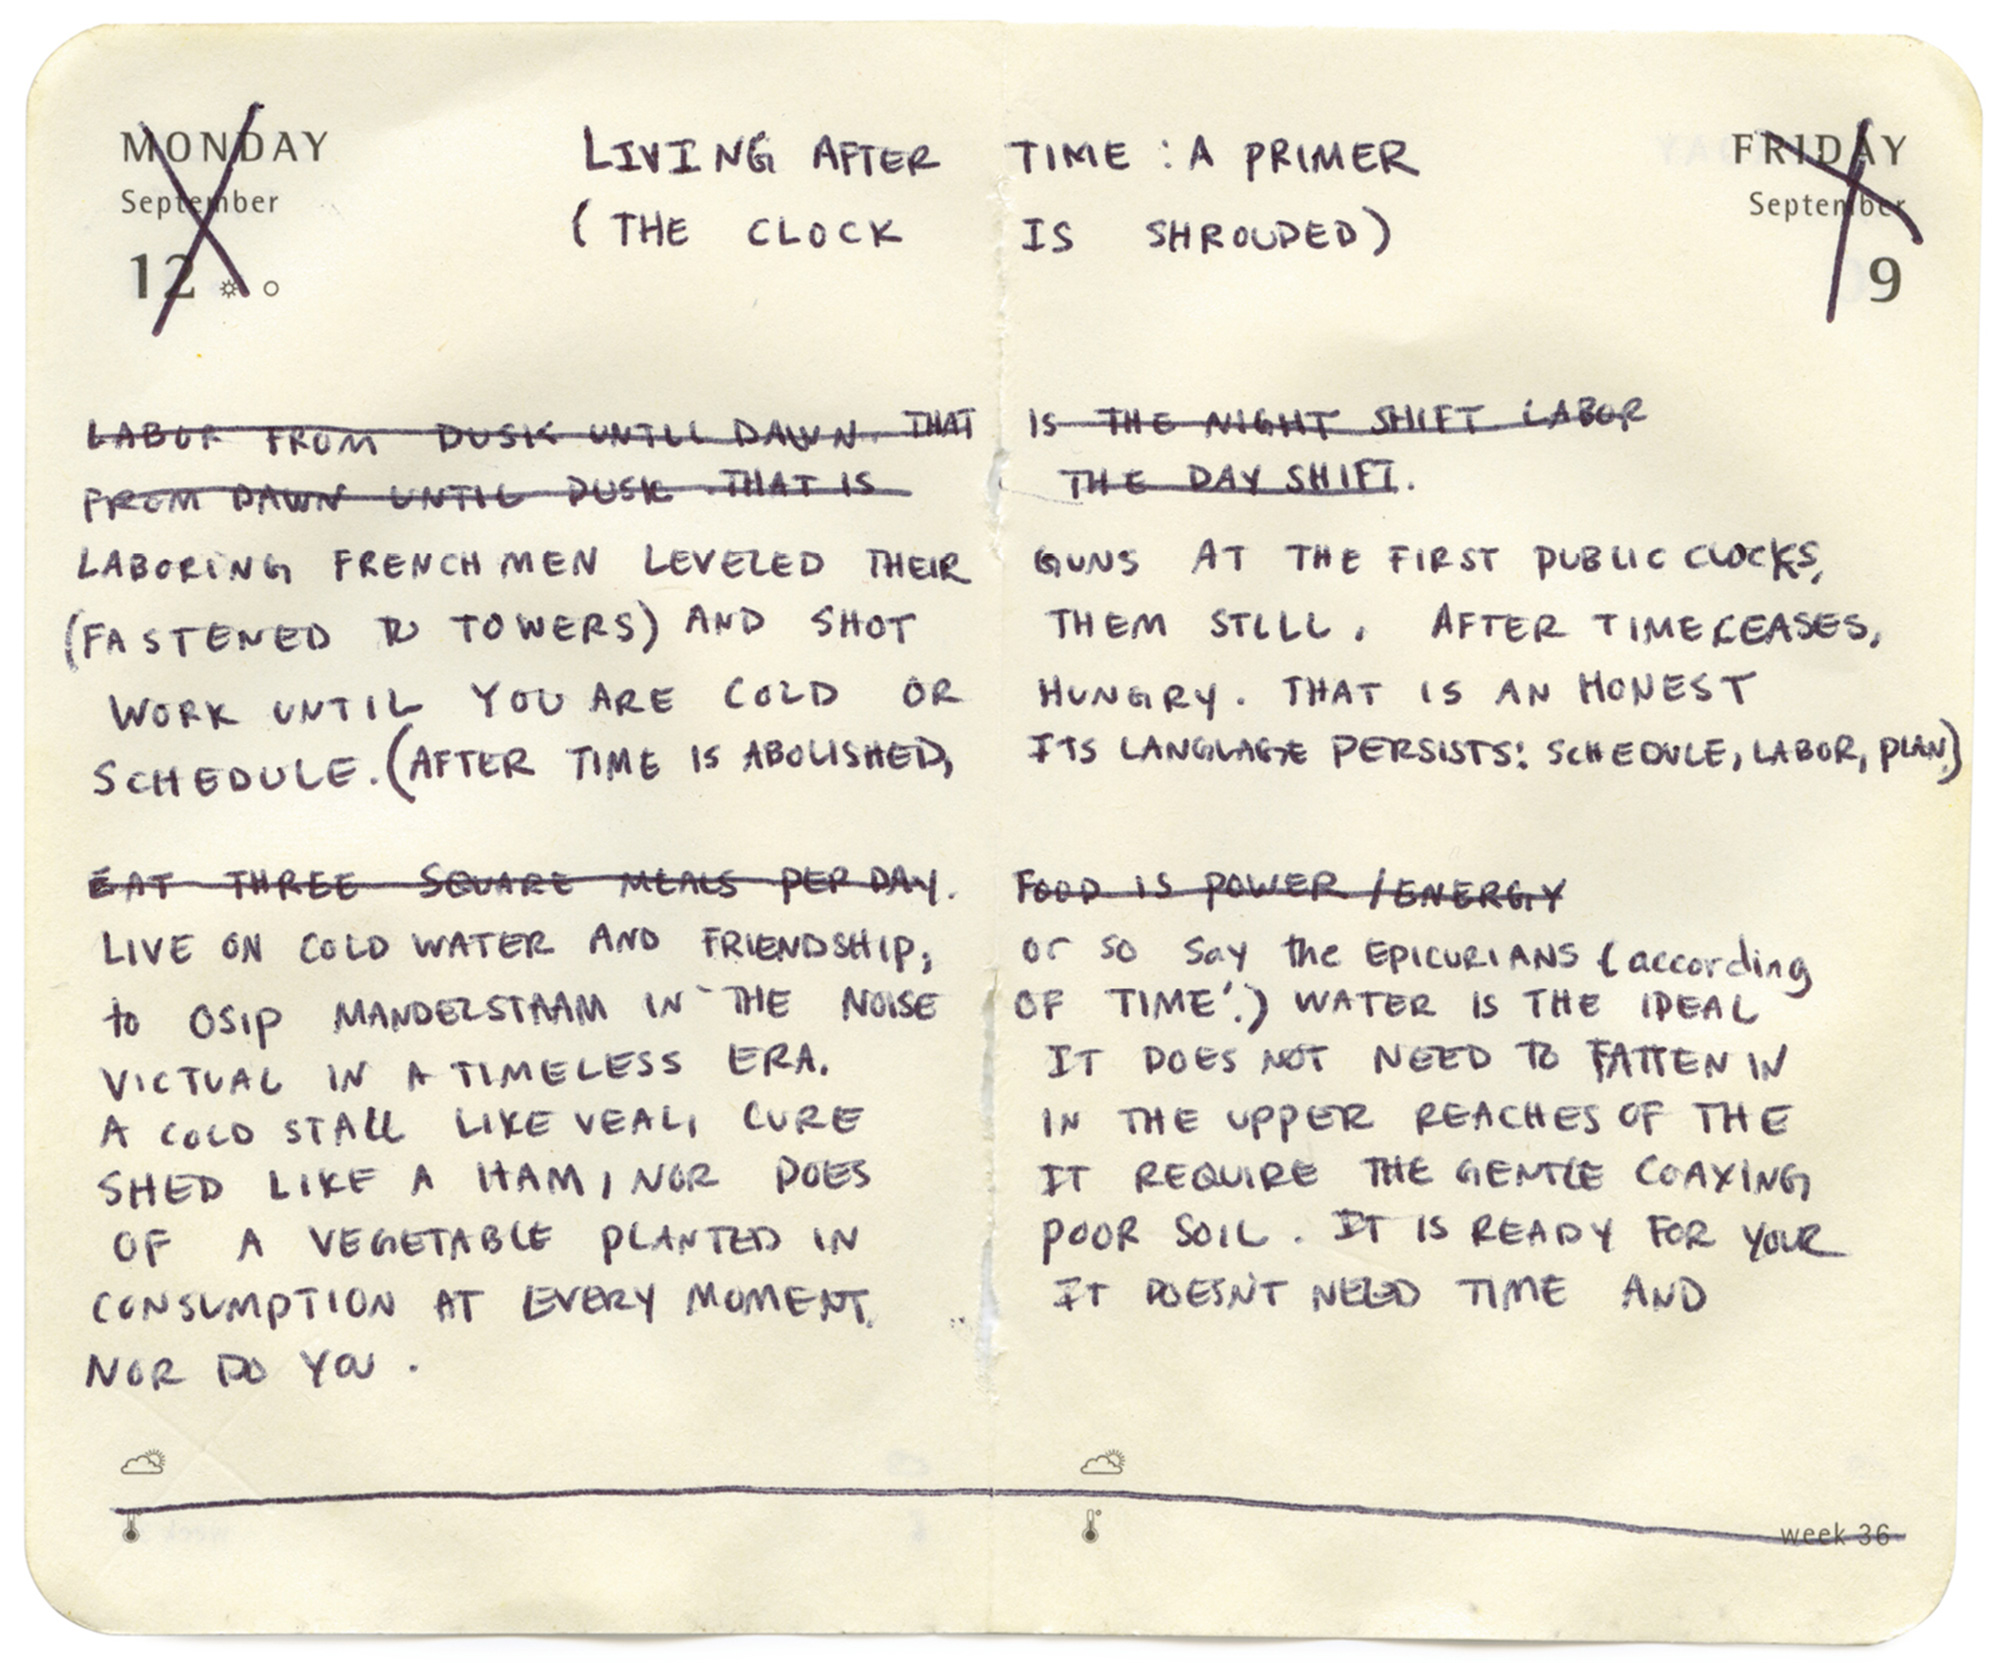 MONDAY
September
12
FRIDAY
September
9
LIVING AFTER TIME : A PRIMER
(THE CLOCK IS SHROUDED)
LABOR FROM DUSK UNTIL DAWN. THAT IS THE NIGHT SHIFT LABOR
FROM DAWN UNTIL DUSK. THAT IS THE DAY SHIFT.
LABORING FRENCHMEN LEVELED THEIR GUNS AT THE FIRST PUBLIC CLOCKS,
(FASTENED TO TOWERS) AND SHOT THEM STILL. AFTER TIME CEASES,
WORK UNTIL YOU ARE COLD OR HUNGRY. THAT IS AN HONEST
SCHEDULE. (AFTER TIME IS ABOLISHED, ITS LANGUAGE PERSISTS: SCHEDULE, LABOR, PLAN.)
EAT THREE SQUARE MEALS PER DAY. FOOD IS POWER / ENERGY
LIVE ON COLD WATER AND FRIENDSHIP, or so say the EPICURIANS (according
to OSIP MANDELSTAAM IN 'THE NOISE OF TIME'.) WATER IS THE IDEAL
VICTUAL IN A TIMELESS ERA. IT DOES NOT NEED TO FATTEN IN
A COLD STALL LIKE VEAL, CURE IN THE UPPER REACHES OF THE
SHED LIKE A HAM, NOR DOES IT REQUIRE THE GENTLE COAXING
OF A VEGETABLE PLANTED IN POOR SOIL. IT IS READY FOR YOUR
CONSUMPTION AT EVERY MOMENT. IT DOESN'T NEED TIME AND
NOR DO YOU.
week 36